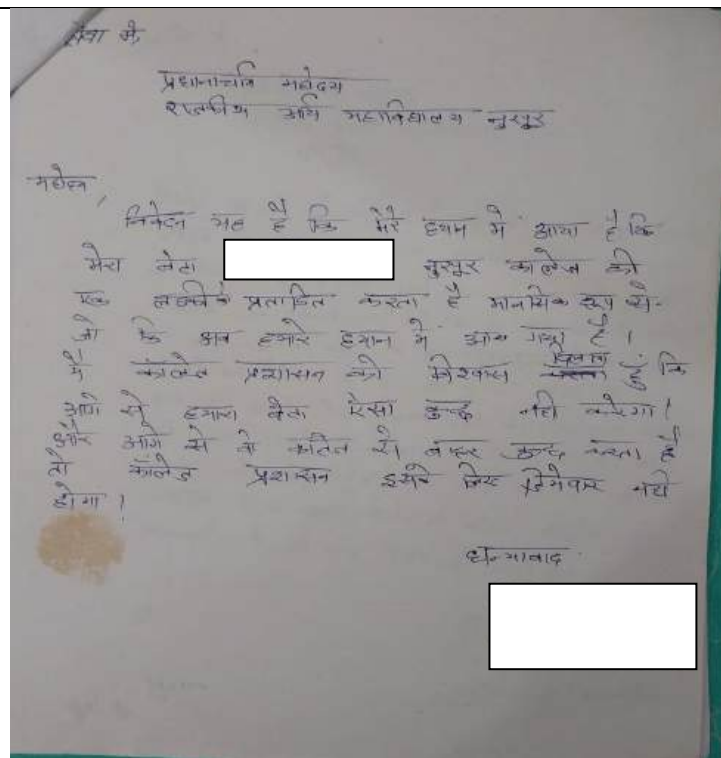 सेवा में,
प्रधानाचार्य महोदय
राजकीय आर्य महाविद्यालय नुरपुर
महोदय,
निवेदन यह है कि मेरे ध्यान में आया है कि
मेरा बेटा नुरपुर कालेज की
एक लड़की को प्रताडित करता है मानसिक रूप से
जो कि अब हमारे ध्यान में आया गया है ।
मैं कालेज प्रशासन को विश्वास दिलाता हूँ कि
आगे से हमारा बेटा ऐसा कुछ नही करेगा ।
और आगे से वो कॉलेज से बाहर कुछ करता है
तो कॉलेज प्रशासन इसके लिए जिमेवार नही
होगा ।
धन्यावाद